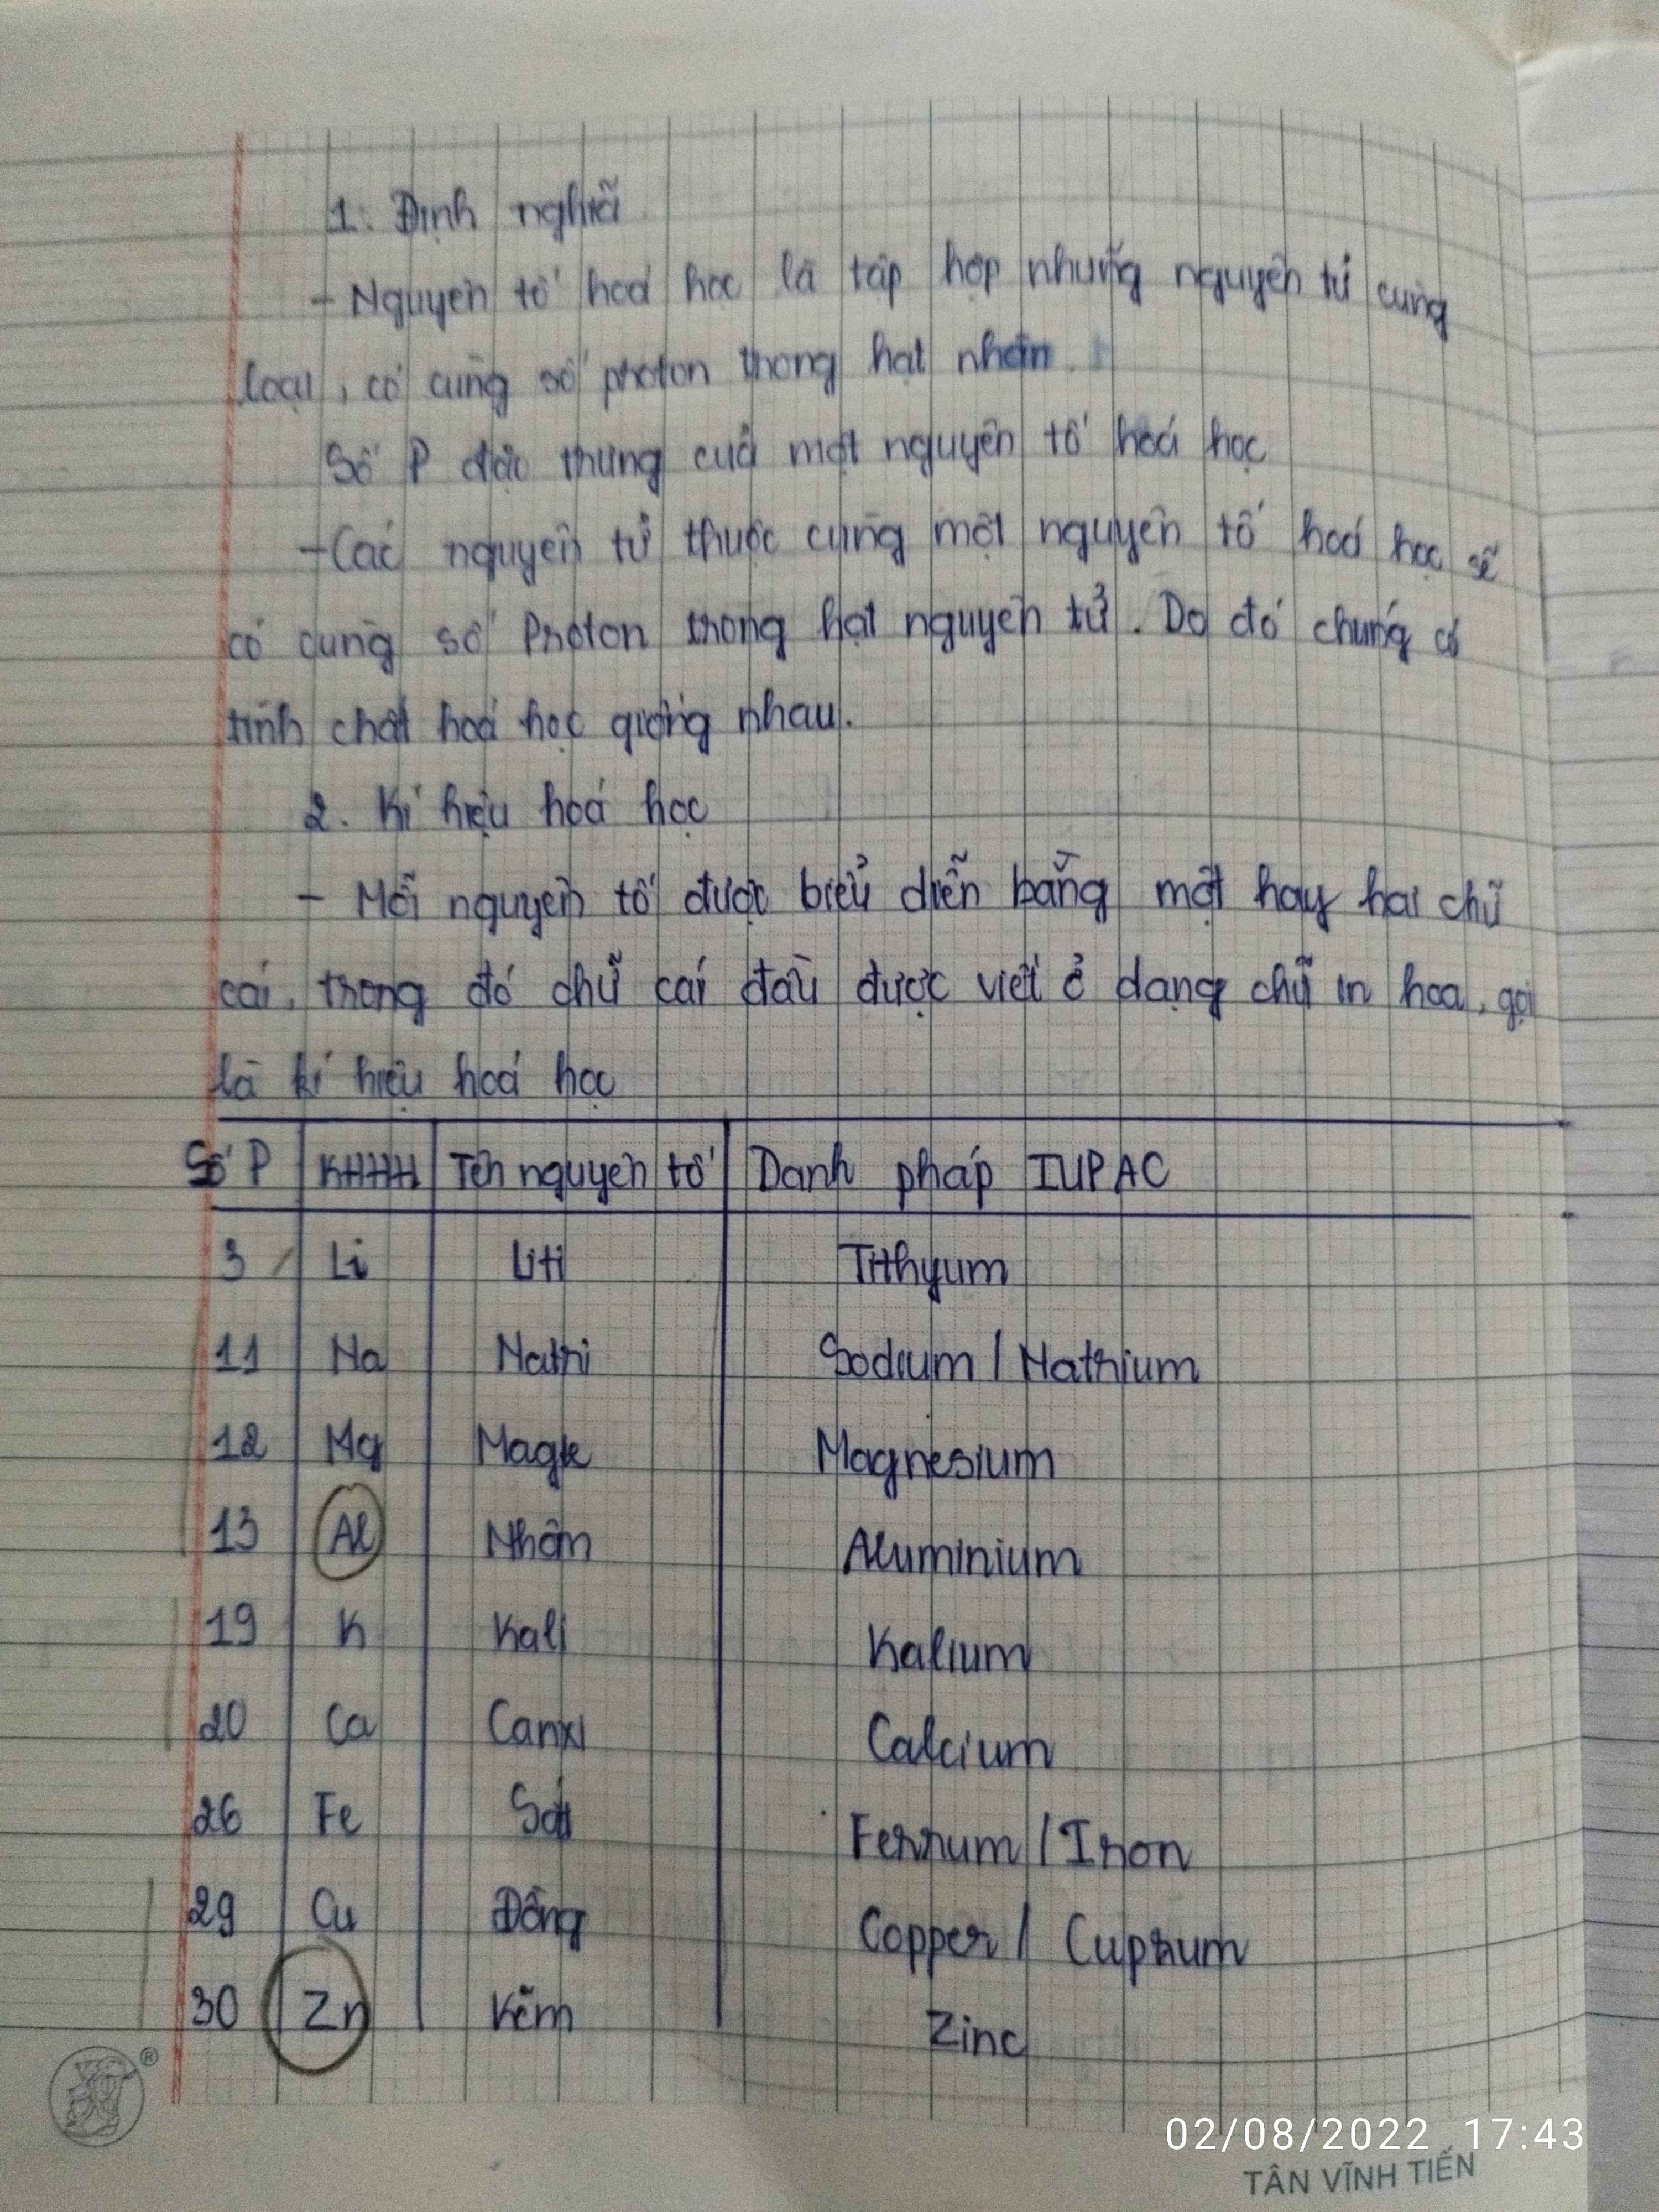 1. Định nghĩã
- Nguyên tố hoá học là tập hợp những nguyên tử cùng
loại, có cùng số photon trong hạt nhân.
Số P đặc trưng cuả một nguyên tố hoá học
- Các nguyên tử thuộc cùng một nguyên tố hoá học sẽ
có cùng số Proton trong hạt nguyên tử. Do đó chúng có
tính chất hoá học giống nhau.
2. Kí hiệu hoá học
- Mỗi nguyên tố được biểu diễn bằng một hay hai chữ
cái, trong đó chữ cái đầu được viết ở dạng chữ in hoa, gọi
là kí hiệu hoá học
Số P KHHH Tên nguyên tố Danh pháp IUPAC
3 Li Liti Tithyum
11 Na Natri Sodium / Nathium
12 Mg Magie Magnesium
13 Al Nhôm Aluminium
19 K Kali Kalium
20 Ca Canxi Calcium
26 Fe Sắt Ferrum / Iron
29 Cu Đồng Copper / Cuprum
30 Zn Kẽm Zinc
®
02/08/2022 17:43
TÂN VĨNH TIẾN